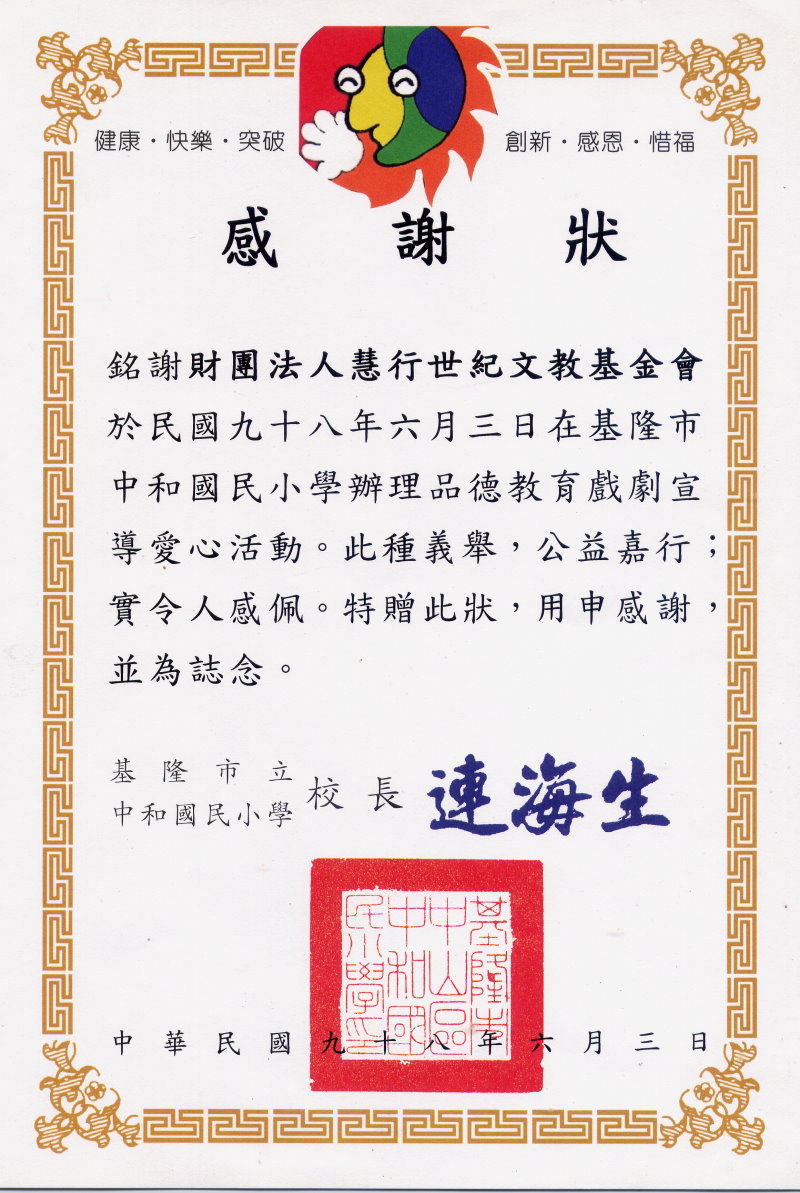 健康・快樂・突破 創新・感恩・惜福
感謝狀
銘謝財團法人慧行世紀文教基金會
於民國九十八年六月三日在基隆市
中和國民小學辦理品德教育戲劇宣
導愛心活動。此種義舉，公益嘉行；
實令人感佩。特贈此狀，用申感謝，
並為誌念。
基隆市立
中和國民小學 校長 連海生
基隆市
中山區
中和國
民小學印
中華民國九十八年六月三日